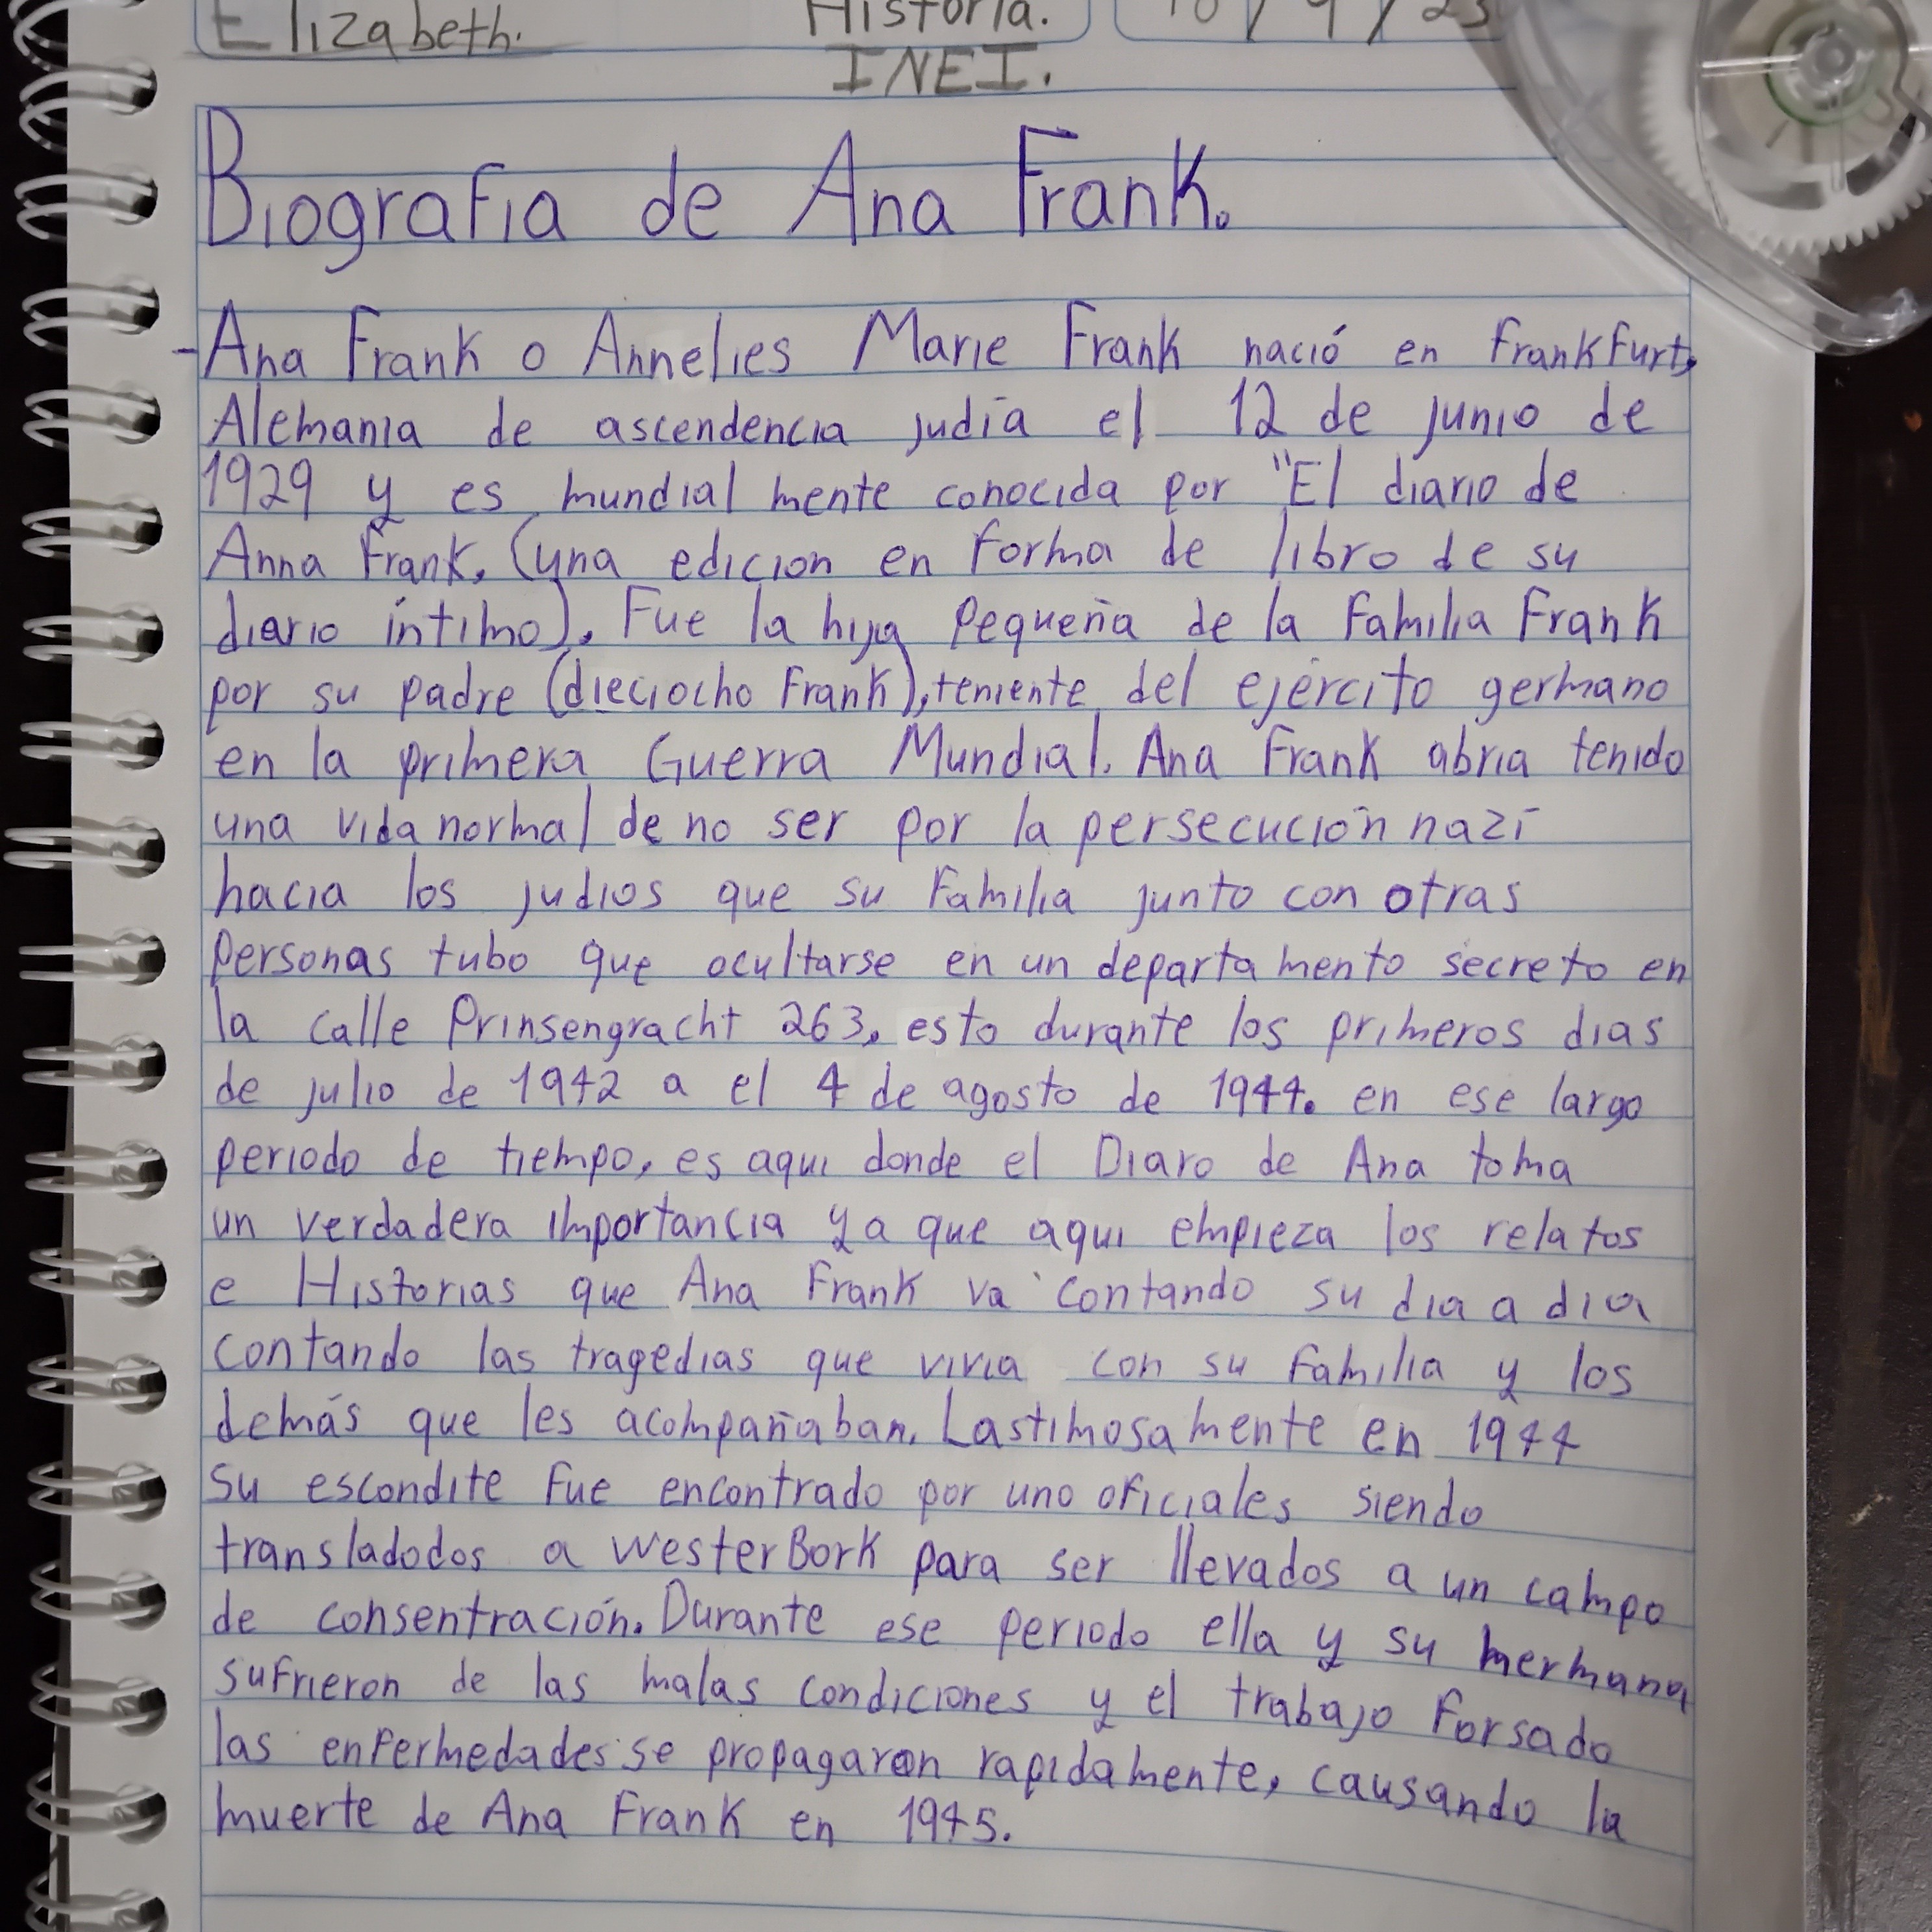 Elizabeth.
Historia.
INEI.
Biografia de Ana Frank.
-Ana Frank o Annelies Marie Frank nació en Frankfurt,
Alemania de ascendencia judía el 12 de junio de
1929 y es mundial mente conocida por "El diario de
Anna Frank. (una edicion en forma de libro de su
diario íntimo). Fue la hija pequeña de la Familia Frank
por su padre (dieciocho Frank), teniente del ejército germano
en la primera Guerra Mundial. Ana Frank abria tenido
una vida normal de no ser por la persecución nazi
hacia los judios que su Familia junto con otras
personas tubo que ocultarse en un departamento secreto en
la calle Prinsengracht 263, esto durante los primeros dias
de julio de 1942 a el 4 de agosto de 1944. en ese largo
periodo de tiempo, es aqui donde el Diaro de Ana toma
un verdadera importancia ya que aqui empieza los relatos
e Historias que Ana Frank va contando su dia a dia
contando las tragedias que vivia con su familia y los
demás que les acompañaban. Lastimosamente en 1944
su escondite fue encontrado por uno oficiales siendo
transladodos a WesterBork para ser llevados a un campo
de consentración. Durante ese periodo ella y su hermana
sufrieron de las malas condiciones y el trabajo Forsado
las enfermedades se propagaron rapidamente, causando la
muerte de Ana Frank en 1945.